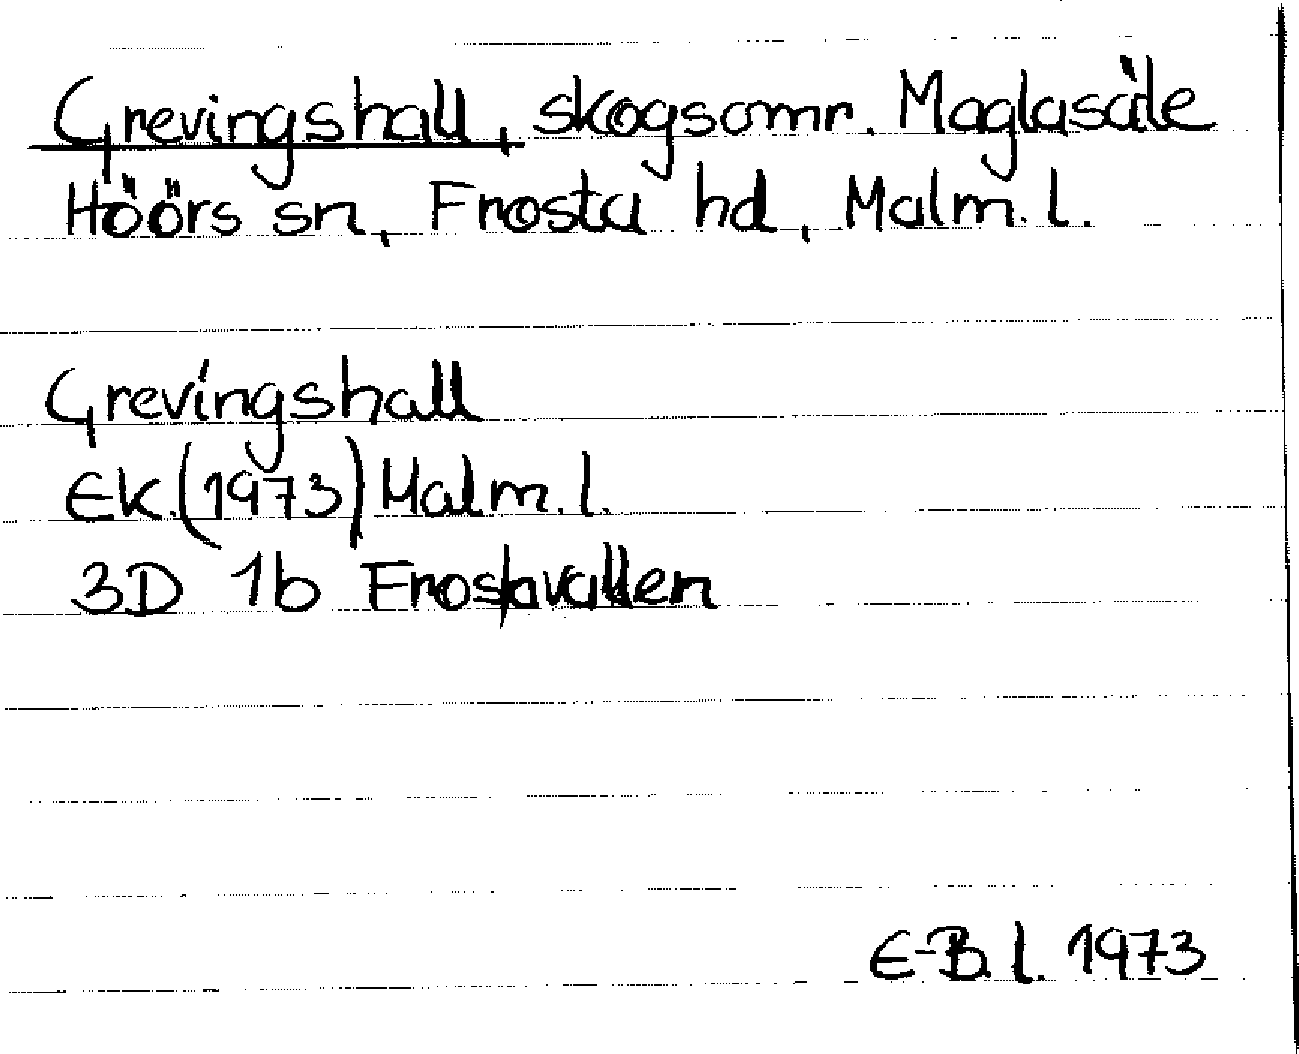 Grevingshall, skogsomr. Maglasäte
Höörs sn, Frosta hd, Malm. l.
Grevingshall
EK.(1973) Malm. l.
3D 1b Frostavallen
E-B. l. 1973